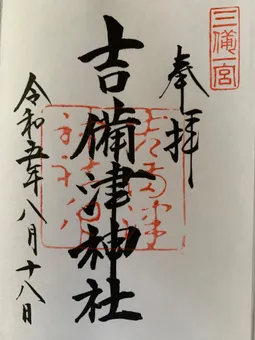 三備一宮
奉拝
吉備津神社
令和五年八月十八日